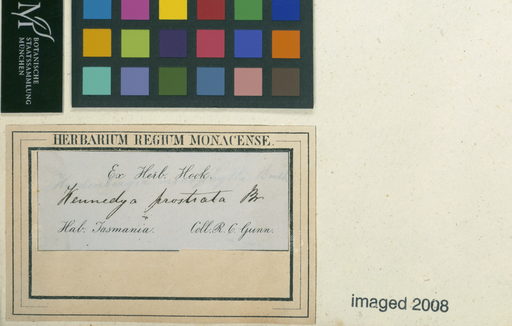 M
BOTANISCHE
STAATSSAMMLUNG
MÜNCHEN
HERBARIUM REGIUM MONACENSE.
Ex Herb. Hook.
Kennedya prostrata Br
Hab. Tasmania. Coll. R. C. Gunn.
imaged 2008